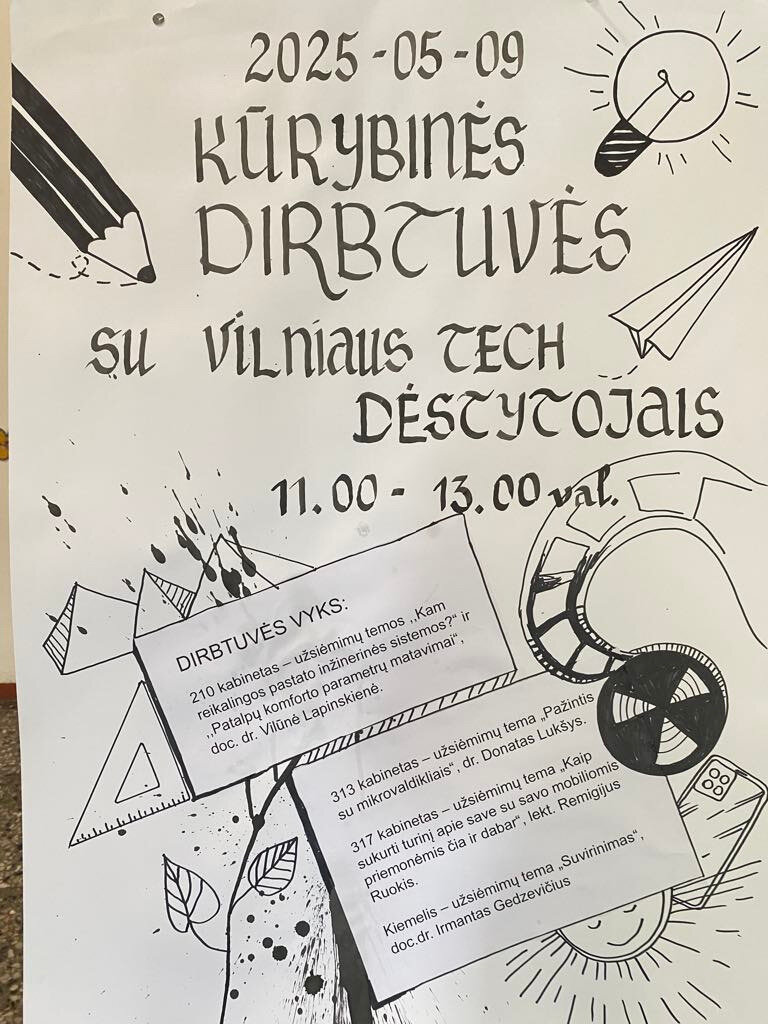 2025-05-09
KŪRYBINĖS
DIRBTUVĖS
SU VILNIAUS TECH
DĖSTYTOJAIS
11.00 - 13.00 val.
DIRBTUVĖS VYKS:
210 kabinetas – užsiėmimų temos ,,Kam
reikalingos pastato inžinerinės sistemos?“ ir
,,Patalpų komforto parametrų matavimai“,
doc. dr. Vilūnė Lapinskienė.
313 kabinetas – užsiėmimų tema „Pažintis
su mikrovaldikliais“, dr. Donatas Lukšys.
317 kabinetas – užsiėmimų tema „Kaip
sukurti turinį apie save su savo mobiliomis
priemonėmis čia ir dabar“, lekt. Remigijus
Ruokis.
Kiemelis – užsiėmimų tema „Suvirinimas“,
doc.dr. Irmantas Gedzevičius